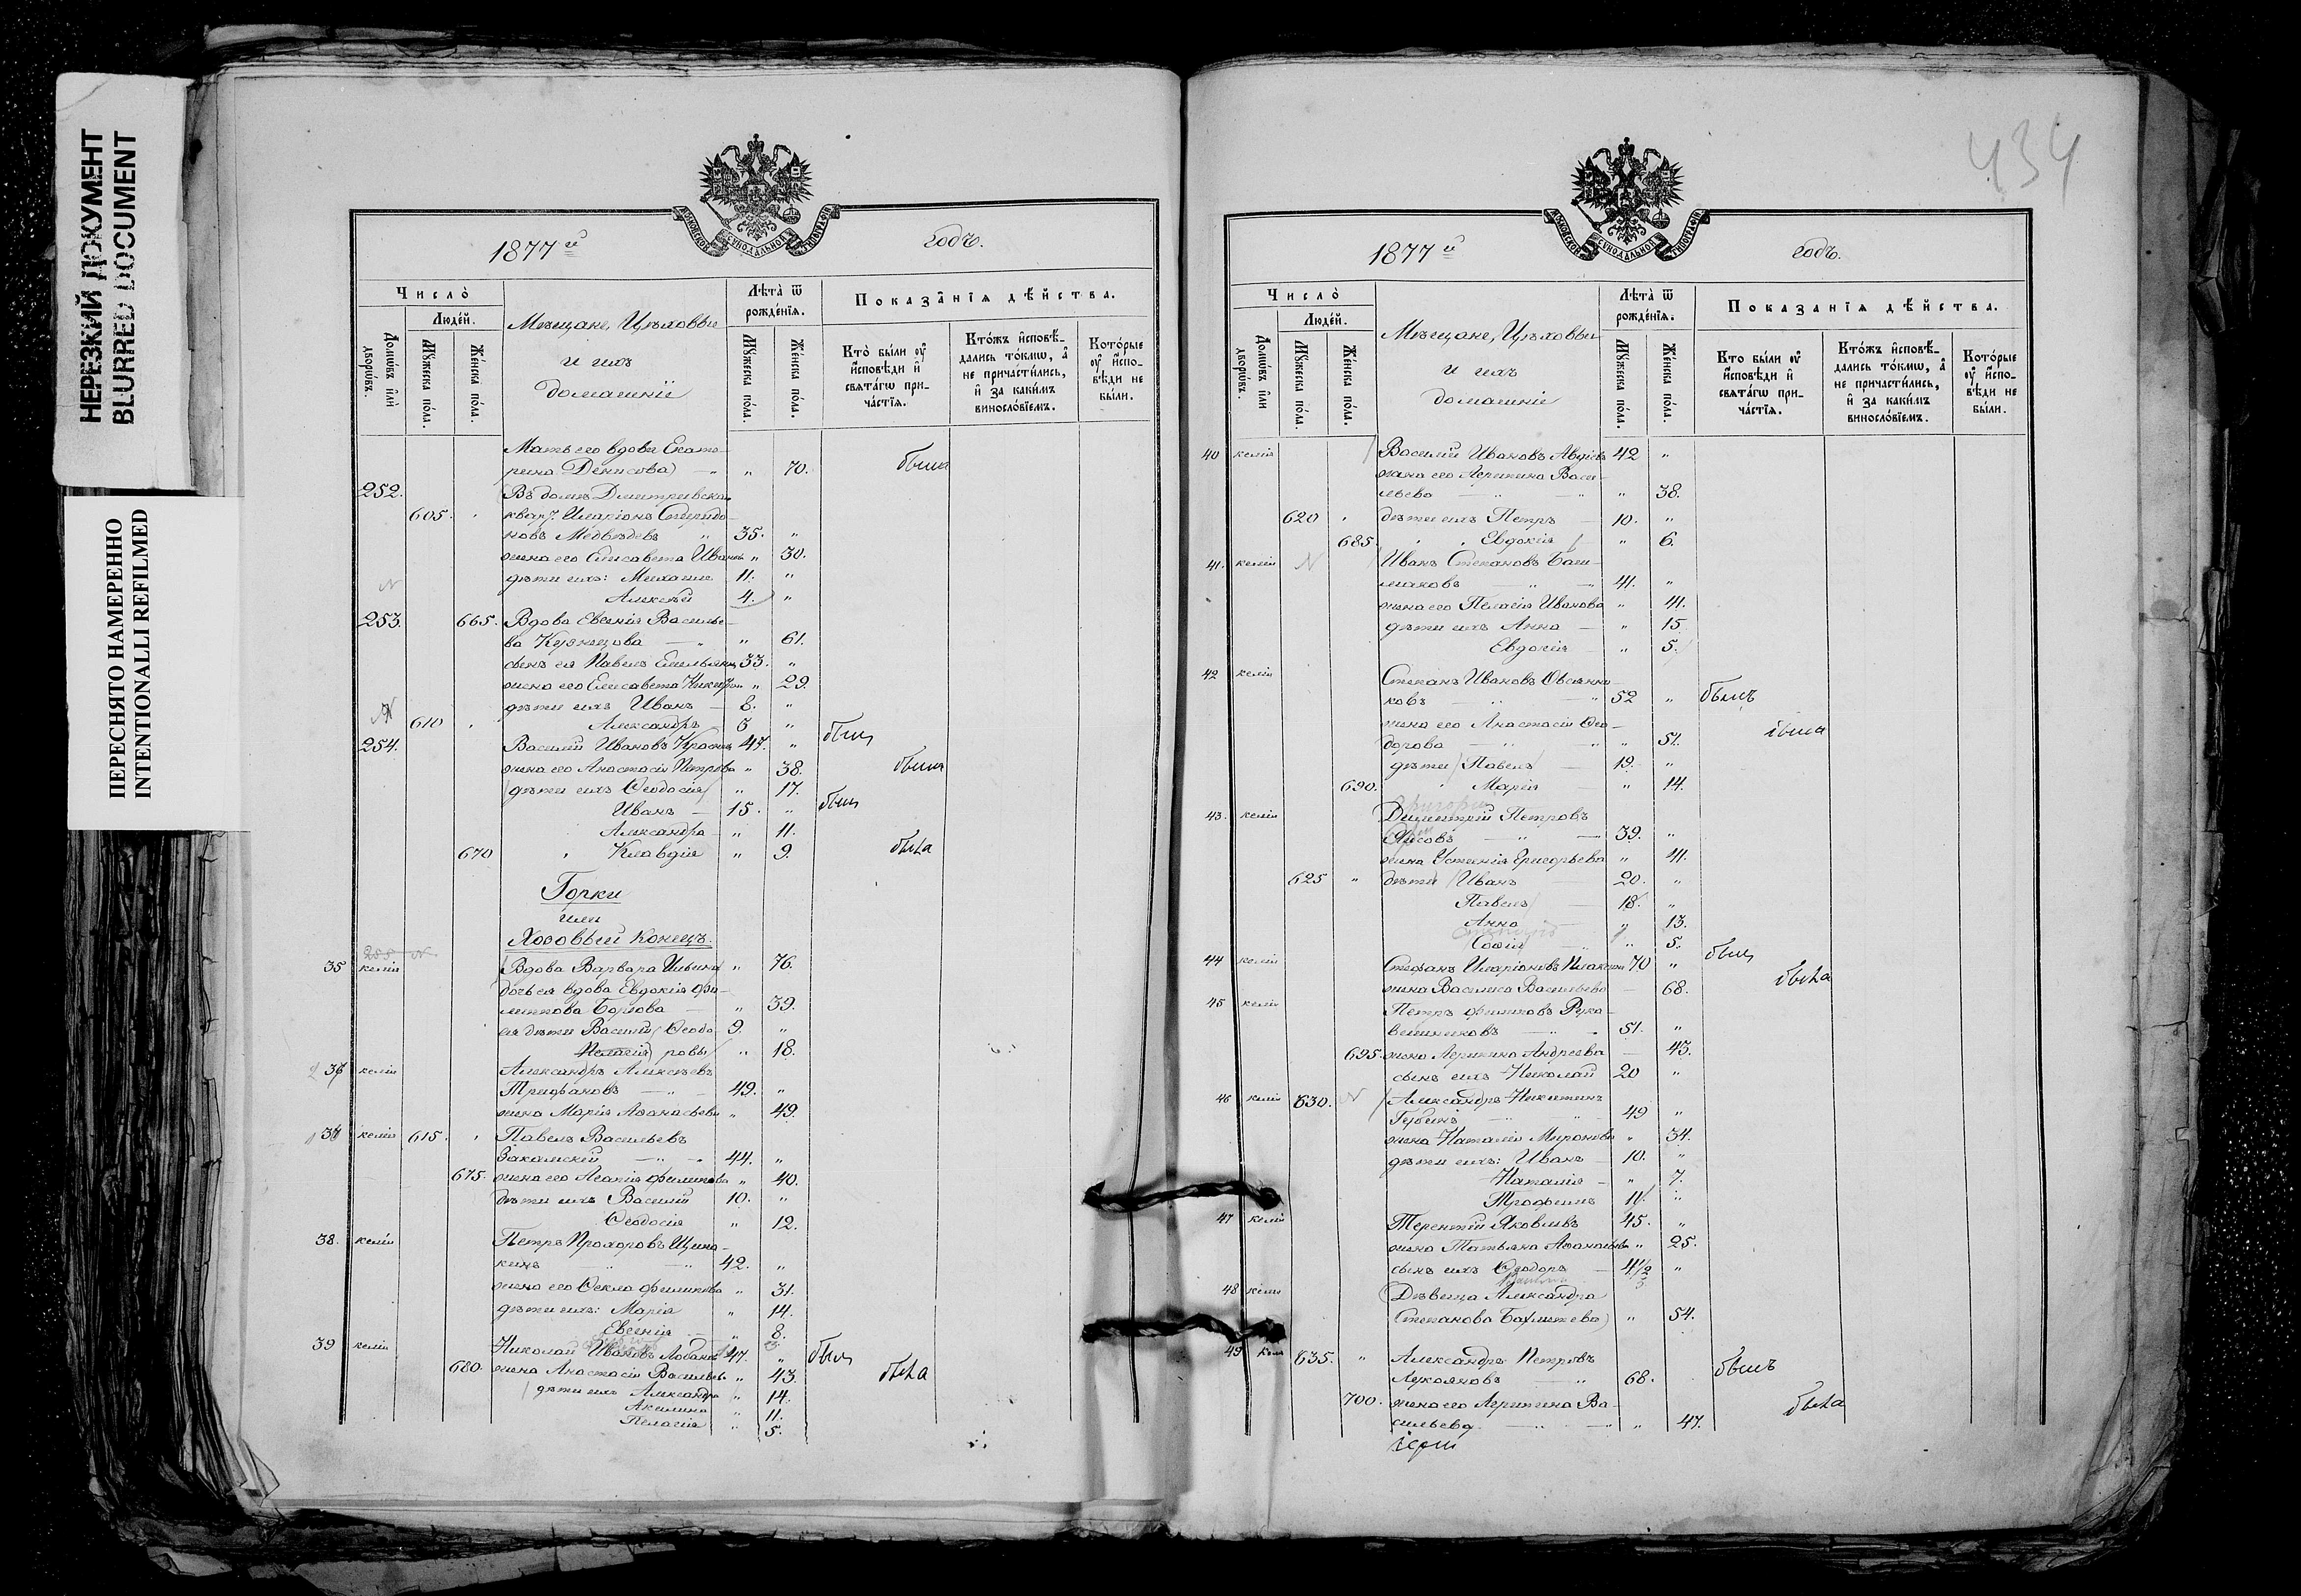 НЕРЕЗКИЙ ДОКУМЕНТ
BLURRED DOCUMENT
ПЕРЕСНЯТО НАМЕРЕННО
INTENTIONALLI REFILMED
МОСКОВСКОЙ СѴНОДАЛЬНОЙ ТИПОГРАФІИ
1877й годъ.
Число̀
Людéй.
Домѡ́въ и҆лѝ дворѡ́въ.
Мꙋ́жеска по́ла.
Же́нска по́ла.
Мѣщане, Цѣховые
и ихъ
домашніе
Лѣта̀ ѿ рожде́нїѧ.
Мꙋ́жеска по́ла.
Же́нска по́ла.
Показа̑нїѧ дѣ́йства.
Кто̀ бы́ли ᲂу҆ и҆сповѣ́ди и҆ свѧта́гѡ при-ча́стїѧ.
Кто́жъ и҆сповѣ́-дались то́кмѡ, а҆ не причасти́лись, и҆ за каки́мъ винословїемъ.
Кото́рые ᲂу҆ и҆спо-вѣ́ди не бы́ли.
Мать его вдова Екате-
рина Денисова) — " " 70. была
252. Въ домѣ Дмитриевска
605. " кварт. Иларіонъ Спиридо-
новъ Медвѣдевъ " 35. "
жена его Елисавета Иванова " 30.
дѣти ихъ: Михаилъ 11. "
N Алексѣй 4. "
253. 665. Вдова Евгенія Василье-
ва Кузнецова — " " 61.
сынъ ея Павелъ Емельяновъ 33. "
жена его Елисавета Никифор. " 29.
дѣти ихъ Иванъ — 8. "
N 610 " Александръ — 3 "
254. Василій Ивановъ 47. " былъ
жена его Анастасія Петрова " 38. была
дѣти ихъ Ѳеодосія " 17.
Иванъ — 15. " былъ
Александра — " 11.
670 " Клавдія " 9. была
Горки
или
Хозовый Конецъ.
255 N
35 келія Вдова Варвара Ильина " 76.
дочь ея вдова Евдокія Фи-
липпова " 39.
ея дѣти Василій Ѳеодо- 9. "
Пелагія ровы " 18.
келія Александръ Алексѣевъ
Трифановъ — " — 49. "
жена Марія Аѳанасьева " 49.
келія 615. " Павелъ Васильевъ
Закамскій — " — 44. "
675. жена его Филиппова " 40.
дѣти ихъ Василій 10. "
Ѳеодосія " 12.
38. келія Петръ Прохоровъ Щина-
кинъ — " — 42. "
жена его Ѳекла Филиппова " 31.
дѣти ихъ: Марія " 14.
Евгенія — " 8.
39 келія Николай Ивановъ Лобановъ 47. " былъ
680. жена Анастасія Васильева " 43. была
дѣти ихъ Александра " 14.
Акилина " 11.
Пелагія " 5.
434
МОСКОВСКОЙ СѴНОДАЛЬНОЙ ТИПОГРАФІИ
1877й годъ.
Число̀
Людéй.
Домѡ́въ и҆лѝ дворѡ́въ.
Мꙋ́жеска по́ла.
Же́нска по́ла.
Мѣщане, Цѣховые
и ихъ
домашніе
Лѣта̀ ѿ рожде́нїѧ.
Мꙋ́жеска по́ла.
Же́нска по́ла.
Показа̑нїѧ дѣ́йства.
Кто̀ бы́ли ᲂу҆ и҆сповѣ́ди и҆ свѧта́гѡ при-ча́стїѧ.
Кто́жъ и҆сповѣ́-дались то́кмѡ, а҆ не причасти́лись, и҆ за каки́мъ винословїемъ.
Кото́рые ᲂу҆ и҆спо-вѣ́ди не бы́ли.
40 келія Василій Ивановъ Авдѣевъ 42 "
жена его Агрипина Васи-
льева — " — " 38.
620 " дѣти ихъ Петръ — 10. "
685. " " Евдокія " 6.
41. келія N Иванъ Степановъ Баш-
маковъ " — 41. "
жена его Пелагія Иванова " 41.
дѣти ихъ Анна — " 15
Евдокія — " 5.
42 келія Степанъ Ивановъ Овсянни-
ковъ — " — " 52 " былъ
жена его Анастасія Ѳео-
дорова — " " 51. была
дѣти Павелъ — 19. "
690. " Марія — " 14.
Григорій
43. келія Димитрій Петровъ
— " — 39. "
жена Устинія Григорьева " 41.
625 " дѣти Иванъ — 20. "
Павелъ — 18. "
Анна — " 13.
Софія " 5.
44 келія Стефанъ Иларіоновъ 70 " былъ
жена Василиса Васильева — 68. была
45 келія Петръ Филиповъ Рука-
вишниковъ — " 51. "
695. жена Агрипина Андреева — 43.
сынъ ихъ Николай 20 "
46 келія 630. N Александръ Никитинъ
Губинъ — " 49 "
жена Наталія Миронова " 34.
дѣти ихъ: Иванъ — 10. "
Наталія — " 7.
Трофимъ 11. "
47 келія Терентій Яковлевъ 45. "
жена Татьяна Аѳанасьева " 25.
сынъ ихъ Ѳеодоръ — 4½ "
48 келія Дѣвица Александра
Степанова Бахметева) " 54.
49 келія 635. " Александръ Петровъ
Лукояновъ — " 68. былъ
700. жена его Агрипина Ва-
сильева — " — " 47. была